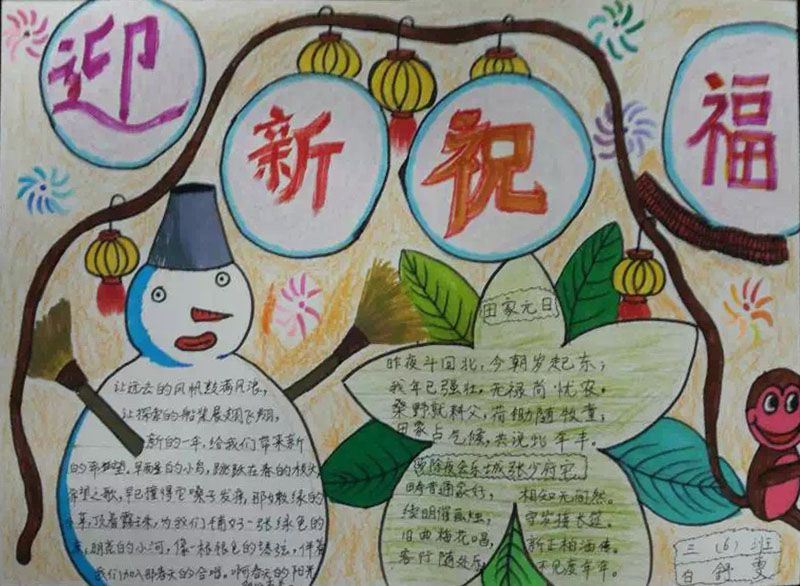 迎新祝福
让远去的风帆鼓满风浪,
让探索的船桨展翅飞翔,
新的一年,给我们带来新
的希望,早 的小鸟,跳跃在春的枝头
希望之歌,早已 得它嗓子发痒,那嫩绿的
草,顶着露珠,为我们铺好一张绿色的
明亮的小河,像一根银色的琴弦,伴着
我们加入那春天的合唱。啊春天的阳光
田家元日
昨夜斗回北,今朝岁起东;
我年已强壮,无禄尚忧农。
桑野就耕父,荷锄随牧童;
田家占气候,共说此年丰。
岁除夜会乐城张少府宅
畴昔通家好, 相知无间然。
续明催画烛, 守岁接长筵。
旧曲梅花唱, 新正柏酒传。
客行随处乐, 不见度年年。
三(6)班
白舒雯